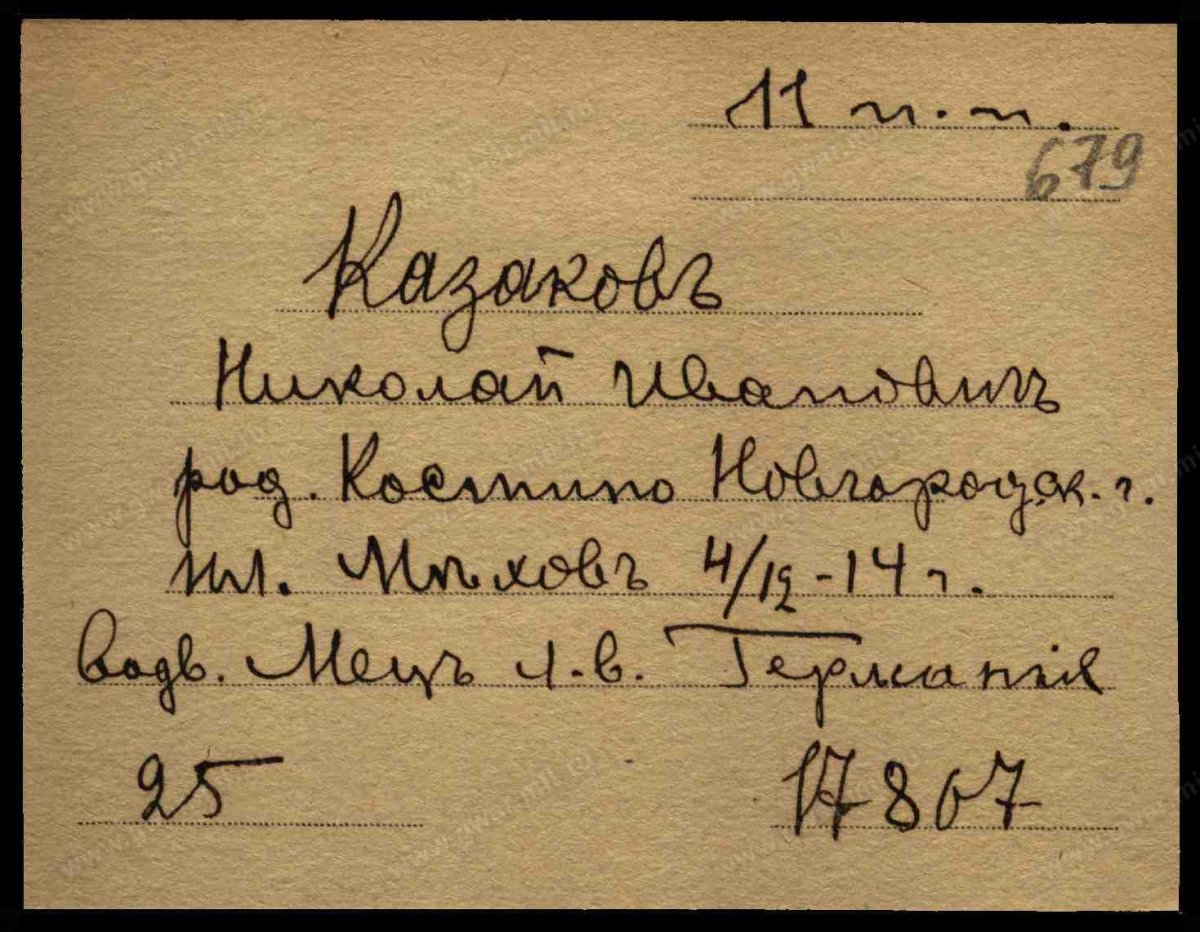 11 п.п.
679
Казаковъ
Николай Ивановичъ
род. Костино Новгородск. г.
пл. Мѣховъ 4/12-14 г.
Водв. Мецъ л.в. Германія
25 17807